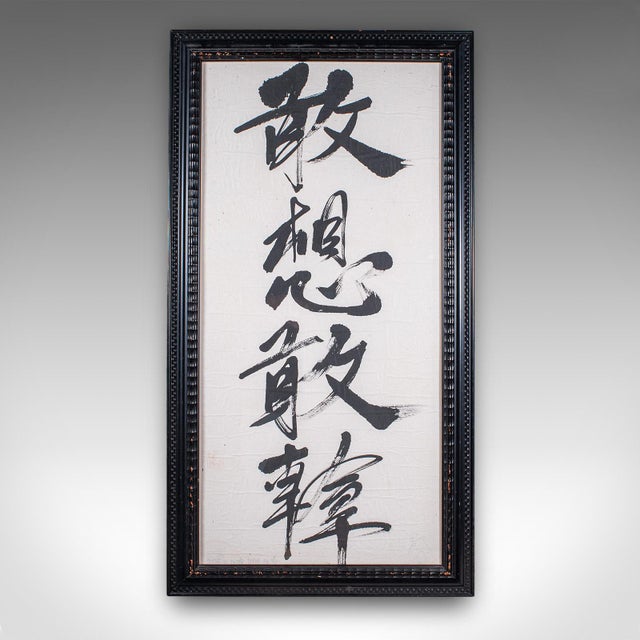 敢想敢幹